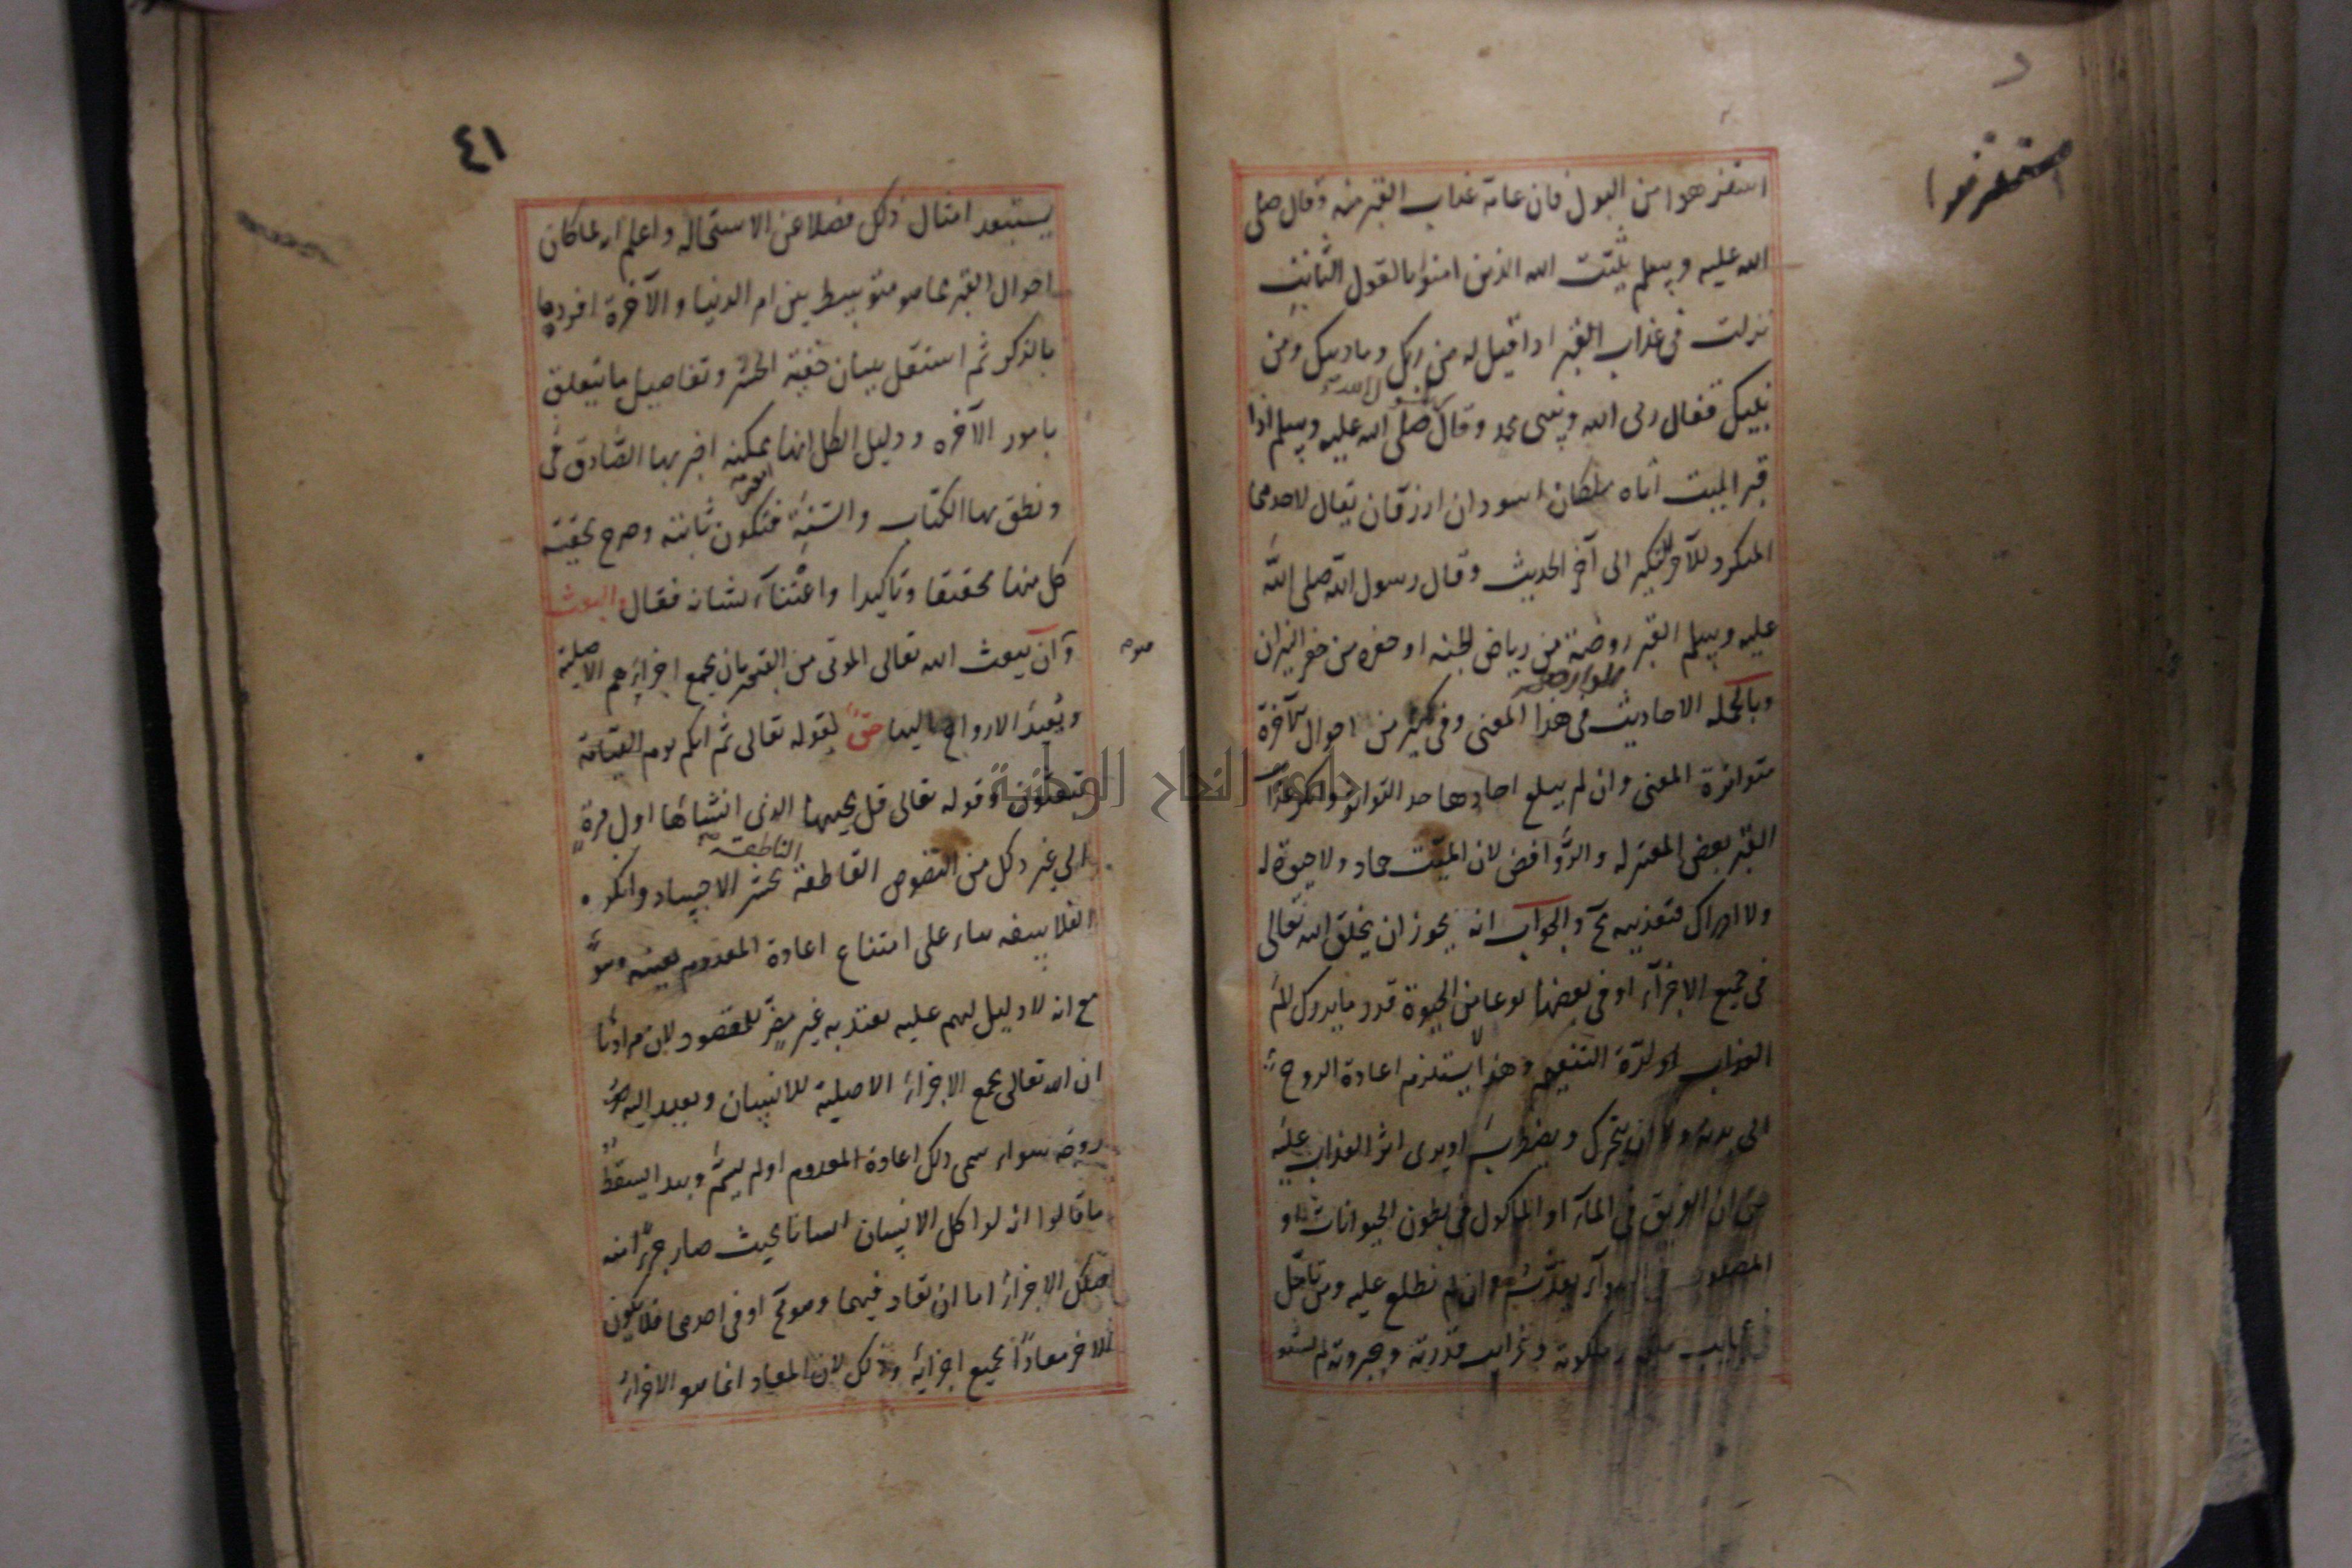 استنزهوا
استنزهوا من البول فان عامة عذاب القبر منه وقال صلى
الله عليه وسلم يثبت الله الذين امنوا بالقول الثابت
نزلت في عذاب القبر اذا قيل له من ربك وما دينك ومن
نبيك فقال ربى الله ونبيى محمد وقال صلى الله عليه وسلم اذا
قبر الميت اتاه ملكان اسودان ازرقان يقال لاحدهما
المنكر وللآخر النكير الى آخر الحديث وقال رسول الله صلى الله
عليه وسلم القبر روضة من رياض الجنة او حفرة من حفر النيران
وبالجملة الاحاديث في هذا المعنى وفي كثير من احوال الآخرة
متواترة المعنى وان لم يبلغ احادها حد التواتر وانكر عذاب
القبر بعض المعتزله والروافض لان الميت جماد ولا حيوة له
ولا ادراك فتعذيبه مح والجواب انه يجوز ان يخلق الله تعالى
في جميع الاجزآء او في بعضها نوعا من الحيوة قدر ما يدرك الم
العذاب او لذة التنعيم وهذا لا يستلزم اعادة الروح
الى بدنه ولا ان يتحرك ويضطرب او يرى اثر العذاب عليه
حتى ان الغريق في المآء او المأكول في بطون الحيوانات او
المصلوب في الهوآء يعذب وان لم نطلع عليه ومن تأمل
في عجايب ملكه وملكوته وغرايب قدرته وجبروته لم
٤١
يستبعد امثال ذلك فضلا عن الاستحالة واعلم انه لما كان
احوال القبر مما هو متوسط بين امر الدنيا والآخرة افردها
بالذكر ثم اشتغل ببيان حقية الحشر وتفاصيل ما يتعلق
بامور الآخره ودليل الكل انها ممكنة اخبر بها الصادق
ونطق بها الكتاب والسنة فتكون ثابتة وصرح بحقية
كل منها تحقيقا وتأكيدا واعتنآء بشانه فقال والبعث
وهو ان يبعث الله تعالى الموتى من القبور بان يجمع اجزائهم الاصلية
ويعيد الارواح اليها حق لقوله تعالى ثم انكم يوم القيامة
تبعثون وقوله تعالى قل يحييها الذى انشأها اول مرة
الى غير ذلك من النصوص القاطعة الناطقة بحشر الاجساد وانكره
الفلاسفه بناء على امتناع اعادة المعدوم بعينه وهو
مع انه لا دليل لهم عليه يعتد به غير مضر بالمقصود لان مرادنا
ان الله تعالى يجمع الاجزاء الاصلية للانسان ويعيد اليه
روحه سواء سمى ذلك اعادة المعدوم او لم يسم وبهذا يسقط
ما قالوا انه لو اكل الانسان انسانا بحيث صار جزءا منه
فتلك الاجزاء اما ان تعاد فيهما وهو مح او في احدهما فلا يكون
الاخر معادا بجميع اجزائه وذلك لان المعاد انما هو الاجزاء
جامعة النجاح الوطنية